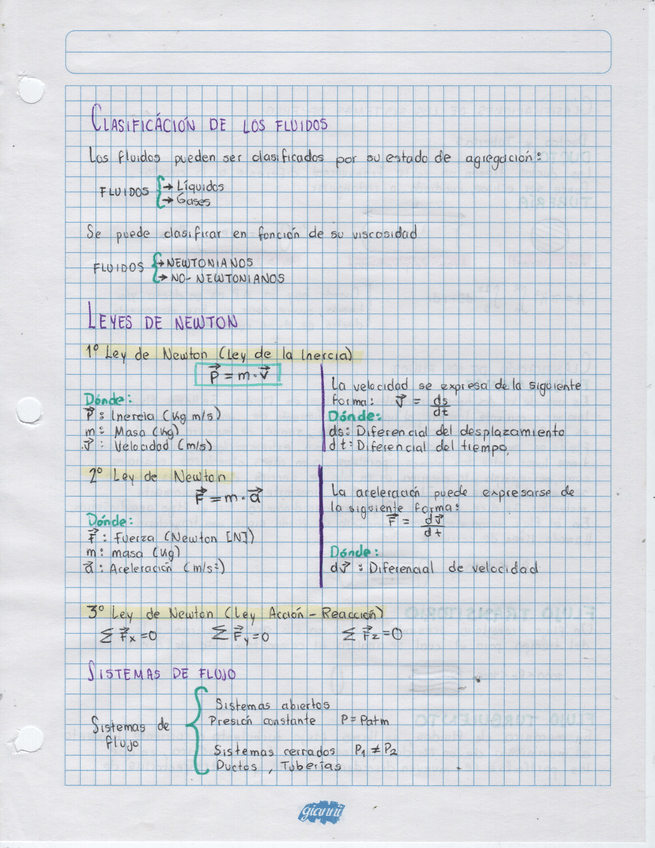 CLASIFICÁCIÓN DE LOS FLUIDOS
Los fluidos pueden ser clasificados por su estado de agregación:
FLUIDOS { → Líquidos
→ Gases
Se puede clasificar en función de su viscosidad
FLUIDOS { → NEWTONIANOS
→ NO-NEWTONIANOS
LEYES DE NEWTON
1° Ley de Newton (Ley de la Inercia)
P⃗ = m·v⃗
Dónde:
P⃗: Inercia (Kg m/s)
m: Masa (Kg)
v⃗: Velocidad (m/s)
La velocidad se expresa de la siguiente
forma: v⃗ = ds/dt
Dónde:
ds: Diferencial del desplazamiento
dt: Diferencial del tiempo.
2° Ley de Newton
F⃗ = m·a⃗
Dónde:
F⃗: Fuerza (Newton [N])
m: masa (Kg)
a⃗: Aceleración (m/s²)
La aceleración puede expresarse de
la siguiente forma:
F⃗ = dv⃗/dt
Dónde:
dv⃗: Diferencial de velocidad
3° Ley de Newton (Ley Acción-Reacción)
∑F⃗x=0 ∑F⃗y=0 ∑F⃗z=0
SISTEMAS DE FLUJO
Sistemas de
flujo
Sistemas abiertos
Presión constante P=Patm
Sistemas cerrados P₁ ≠ P₂
Ductos, Tuberías
gianni